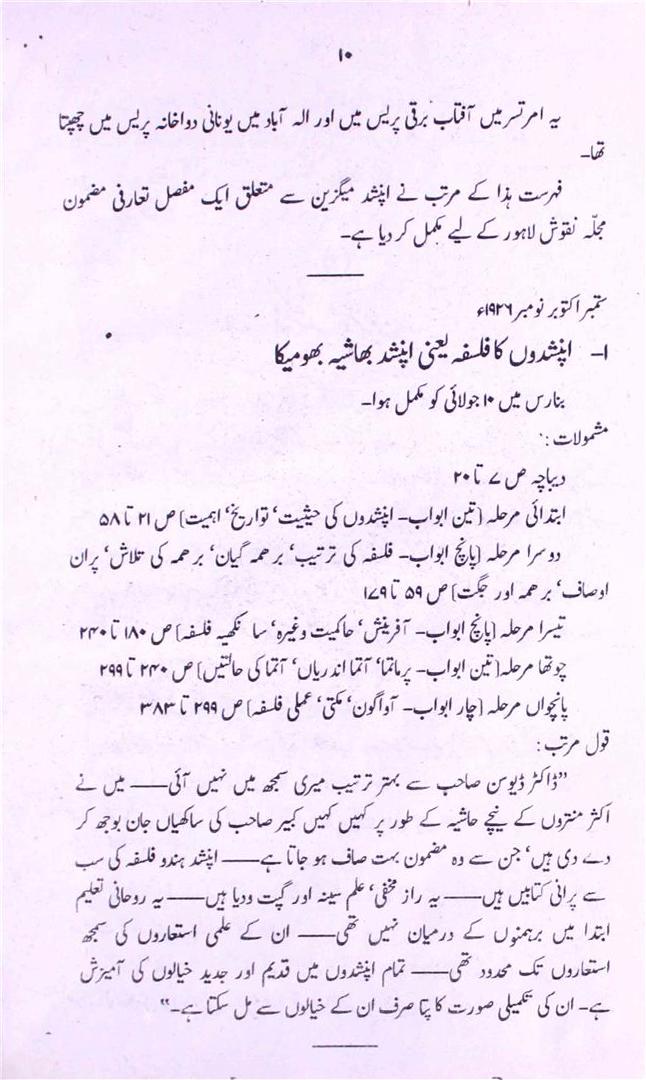 ۱۰
یہ امرتسر میں آفتاب برقی پریس میں اور الہ آباد میں یونانی دواخانہ پریس میں چھپتا
تھا۔
فہرست ہذا کے مرتب نے اپنشد میگزین سے متعلق ایک مفصل تعارفی مضمون
مجلّہ نقوش لاہور کے لیے مکمل کر دیا ہے۔
ستمبر اکتوبر نومبر ۱۹۲۶ء
۱۔ اپنشدوں کا فلسفہ یعنی اپنشد بھاشیہ بھومیکا
بنارس میں ۱۰ جولائی کو مکمل ہوا۔
مشمولات :
دیباچہ ص ۷ تا ۲۰
ابتدائی مرحلہ [تین ابواب۔ اپنشدوں کی حیثیت، تواریخ، اہمیت] ص ۲۱ تا ۵۸
دوسرا مرحلہ [پانچ ابواب۔ فلسفہ کی ترتیب، برحمہ گیان، برحمہ کی تلاش، پران
اوصاف، برحمہ اور جگت] ص ۵۹ تا ۱۷۹
تیسرا مرحلہ [پانچ ابواب۔ آفرینش، حاکمیت وغیرہ، سانکھیہ فلسفہ] ص ۱۸۰ تا ۲۴۰
چوتھا مرحلہ [تین ابواب۔ پرماتما، آتما اندریاں، آتما کی حالتیں] ص ۲۴۰ تا ۲۹۹
پانچواں مرحلہ [چار ابواب۔ آواگون، مکتی، عملی فلسفہ] ص ۲۹۹ تا ۳۸۳
قول مرتب :
”ڈاکٹر ڈیوسن صاحب سے بہتر ترتیب میری سمجھ میں نہیں آئی—— میں نے
اکثر منتروں کے نیچے حاشیہ کے طور پر کہیں کہیں کبیر صاحب کی ساکھیاں جان بوجھ کر
دے دی ہیں، جن سے وہ مضمون بہت صاف ہو جاتا ہے—— اپنشد ہندو فلسفہ کی سب
سے پرانی کتابیں ہیں—— یہ راز مخفی، علم سینہ اور گپت ودیا ہیں—— یہ روحانی تعلیم
ابتدا میں برہمنوں کے درمیان نہیں تھی—— ان کے علمی استعاروں کی سمجھ
استعاروں تک محدود تھی—— تمام اپنشدوں میں قدیم اور جدید خیالوں کی آمیزش
ہے۔ ان کی تکمیلی صورت کا پتا صرف ان کے خیالوں سے مل سکتا ہے۔“